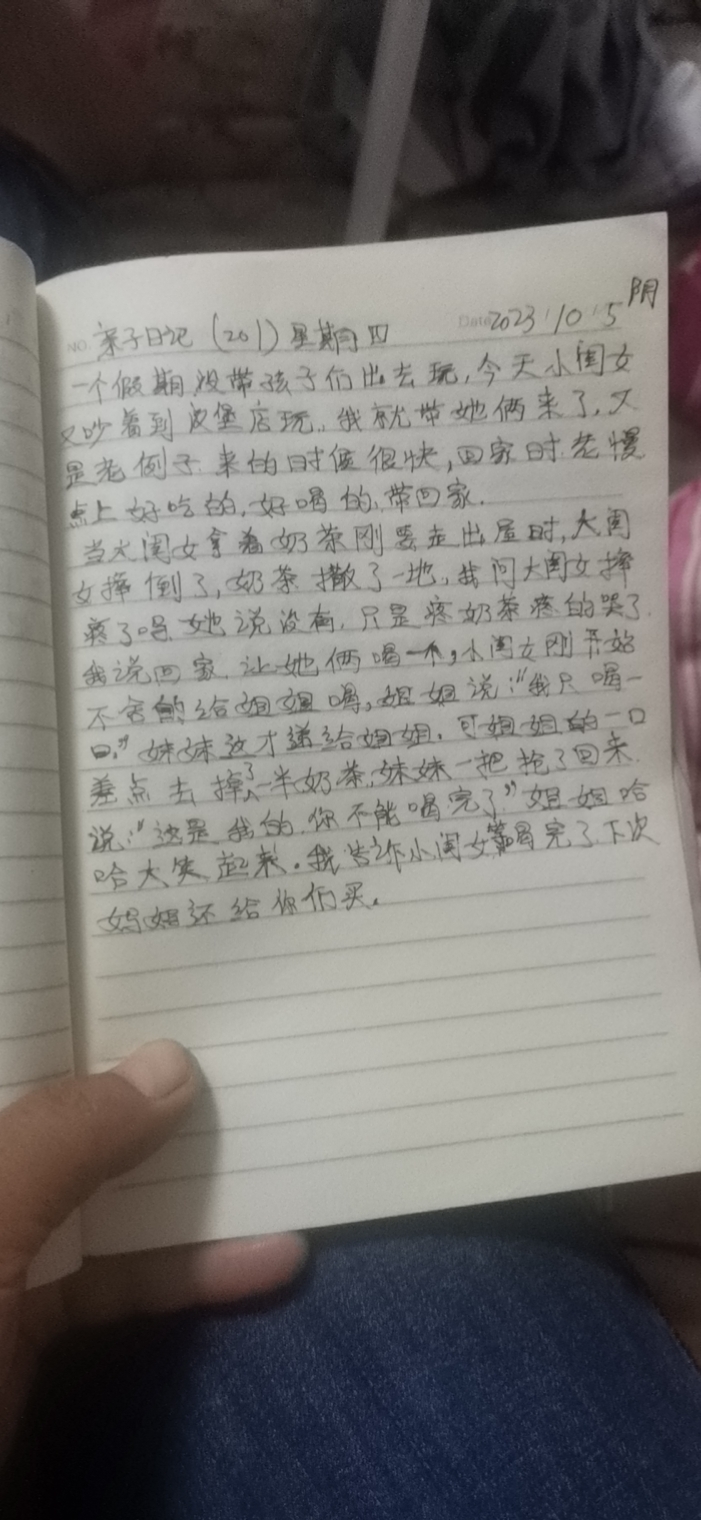 阴
NO. 亲子日记(201)星期四 Date 2023 10 5
一个假期没带孩子们出去玩,今天小闺女
又吵着到汉堡店玩,我就带她俩来了,又
是老例子来的时候很快,回家时老慢
点上好吃的,好喝的,带回家.
当大闺女拿着奶茶刚要走出屋时,大闺
女摔倒了,奶茶撒了一地,我问大闺女摔
疼了吗她说没有,只是疼奶茶疼的哭了.
我说回家让她俩喝一个,小闺女刚开始
不舍的给姐姐喝,姐姐说:“我只喝一
口,”妹妹这才递给姐姐.可姐姐的一口
差点去掉了一半奶茶,妹妹一把抢了回来
说:“这是我的你不能喝完了”姐姐哈
哈大笑起来.我告诉小闺女喝完了下次
妈妈还给你们买.